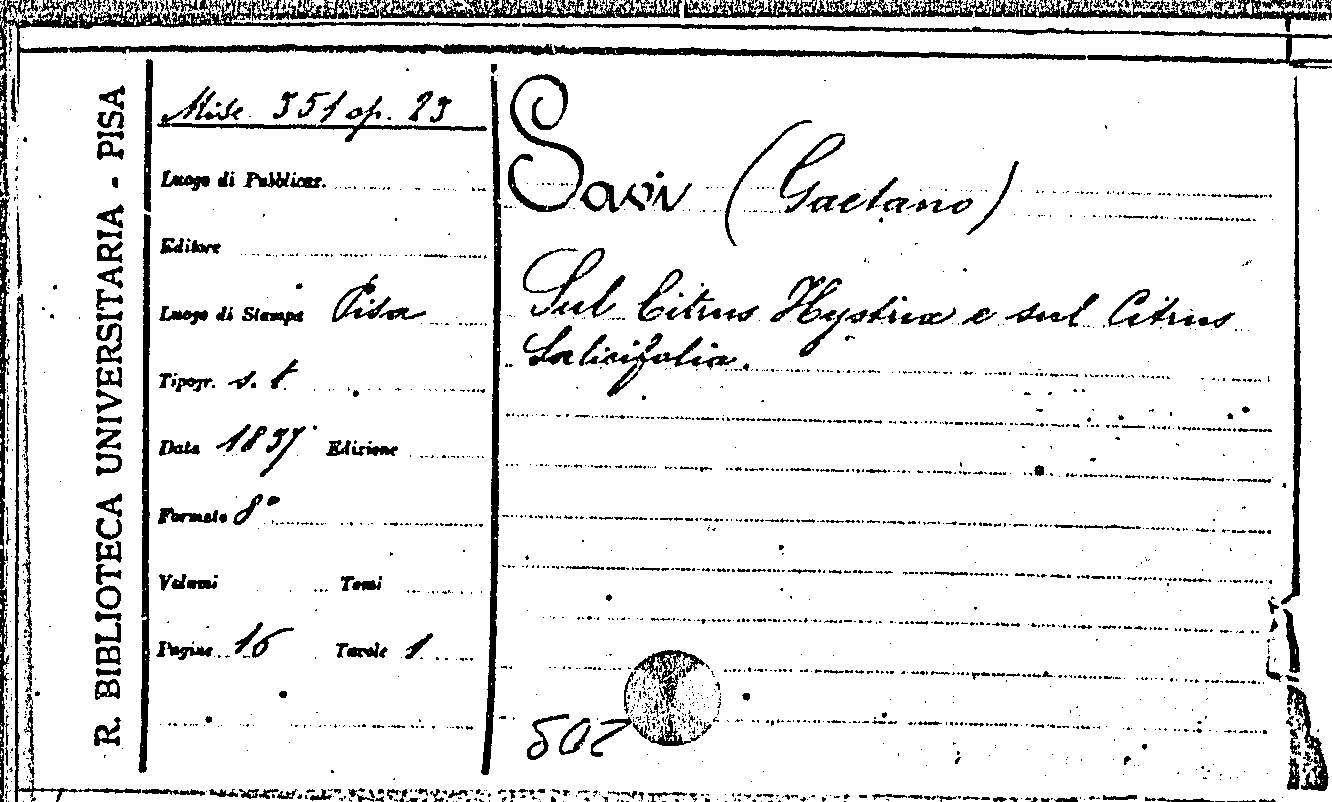 R. BIBLIOTECA UNIVERSITARIA - PISA
Misc. 351 op. 23
Luogo di Pubblicaz.
Editore
Luogo di Stampa Pisa
Tipogr. s. t.
Data 1837 Edizione
Formato 8°
Volumi Tomi
Pagine 16 Tavole 1
Savi (Gaetano)
Sul Citrus Hystrix e sul Citrus
Salicifolia.